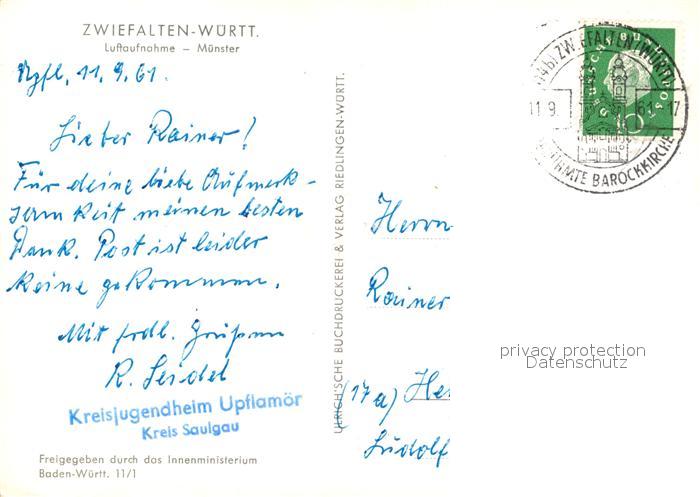 ZWIEFALTEN-WÜRTT.
Luftaufnahme – Münster
Upfl, 11.9.61.
Lieber Rainer!
Für deine liebe Aufmerk-
samkeit meinen besten
Dank. Post ist leider
keine gekommen.
Mit frdl. Grüßen
R. Seidel
Kreisjugendheim Upflamör
Kreis Saulgau
Freigegeben durch das Innenministerium
Baden-Württ. 11/1
ULRICH'SCHE BUCHDRUCKEREI & VERLAG RIEDLINGEN-WÜRTT.
ZWIEFALTEN (WÜRTT)
11.9. 61-17
BERÜHMTE BAROCKKIRCHE
Herrn
Rainer
(17a) He
Ludolf
privacy protection
Datenschutz